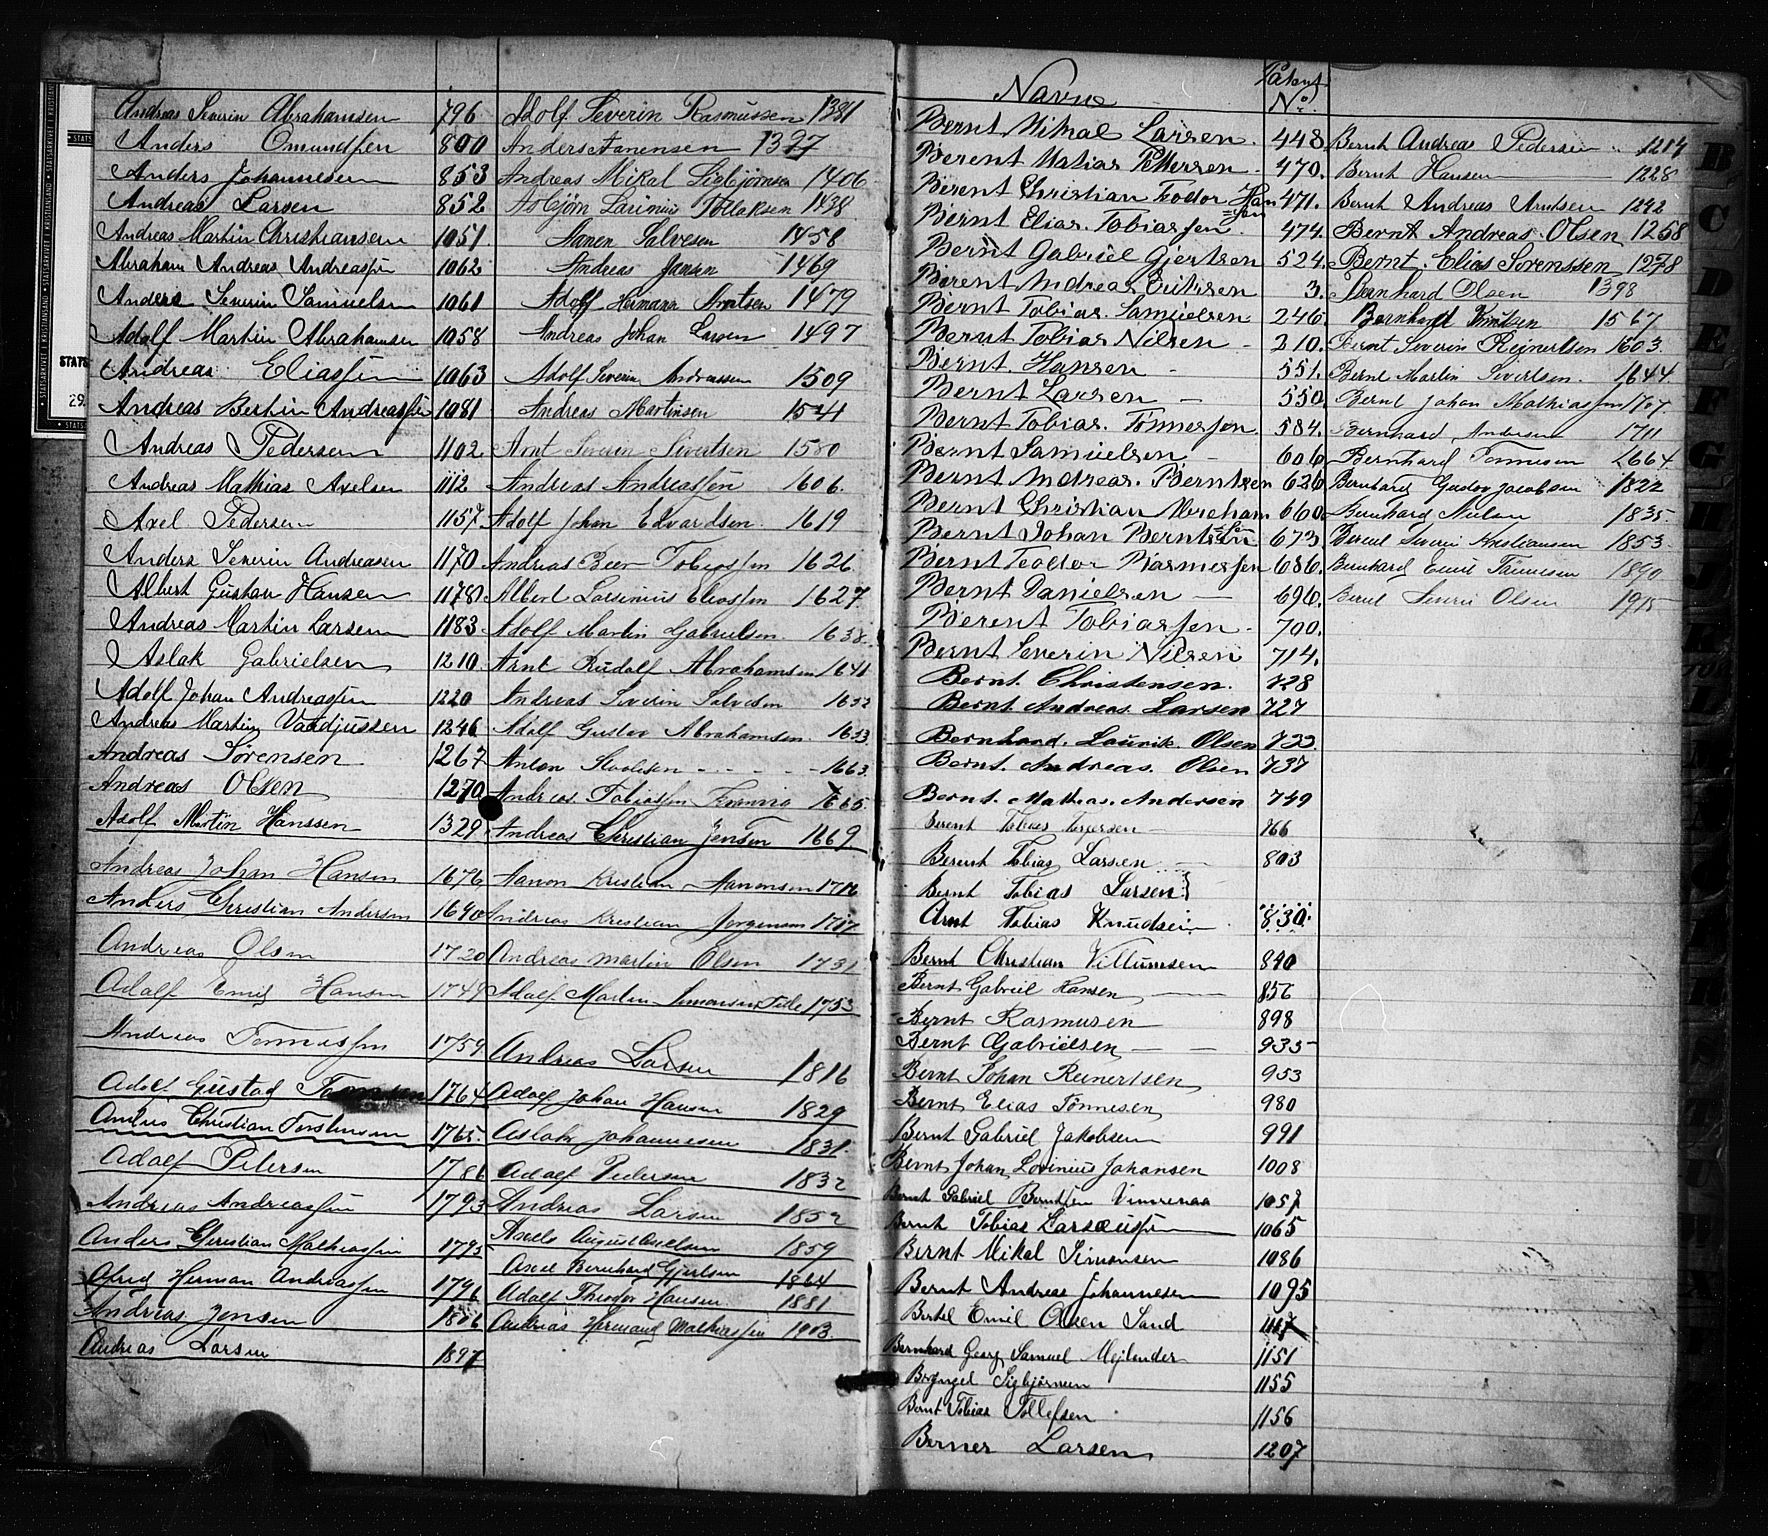 Andreas Severin Abrahamsen 796
Anders Omundsen 800
Anders Johannesen 853
Andreas Larsen 852
Andreas Martin Christiansen 1051
Abraham Andreas Andreassen 1062
Anders Severin Samuelsen 1061
Adolf Martin Abrahamsen 1058
Andreas Eliassen 1063
Andreas Bertin Andreassen 1081
Andreas Pedersen 1102
Andreas Mathias Axelsen 1112
Axel Pedersen 1157
Anders Severin Andreasen 1170
Albert Gustav Hansen 1178
Andreas Martin Larsen 1183
Aslak Gabrielsen 1210
Adolf Johan Andreassen 1220
Andreas Martin 1246
Andreas Sørensen 1267
Andreas Olsen 1270
Adolf Martin Hanssen 1329
Andreas Johan Hansen 1676
Anders Christian Andersen 1690
Andreas Olsen 1720
Adolf Emil Hansen 1749
Andreas Tønnessen 1759
Adolf Gustad 1764
Anders Christian Torstensen 1765
Adolf Petersen 1786
Andreas Andreassen 1793
Anders Christian Mathiassen 1795
Herman Andreassen 1796
Andreas Jensen 1886
Andreas Larsen 1897
Adolf Severin Rasmussen 1381
Anders Aanensen 1397
Andreas Mikal Sigbjørnsen 1406
Asbjørn Larinius Tollaksen 1438
Aanen Salvesen 1458
Andreas Jansen 1469
Adolf Hermann Arntsen 1479
Andreas Johan Larsen 1497
Adolf Severin Andreassen 1509
Andreas Martinsen 1541
Arnt Severin Sivertsen 1580
Andreas Andreassen 1606
Adolf Johan Edvardsen 1619
Andreas Beer Tobiassen 1626
Albert Larsenius Eliassen 1627
Adolf Martin Gabrielsen 1638
Arnt Rudolf Abrahamsen 1641
Andreas Severin Salvesen 1652
Adolf Gustav Abrahamsen 1653
Anton 1663
Andreas Tobiassen 1665
Andreas Christian Jensen 1669
Aanon Kristian Aanonsen 1716
Andreas Kristian Jørgensen 1717
Andreas Martin Olsen 1731
Adolf Martin Simonsen 1753
Andreas Larsen 1816
Adolf Johan Hansen 1829
Aslak Johannessen 1831
Adolf Pedersen 1832
Andreas Larsen 1852
Axels August Axelsen 1859
Axel Bernhard Gjertsen 1864
Adolf Theodor Hansen 1881
Andreas Hermand Mathiassen 1903
Navne Patent No.
Bernt Mikal Larsen 448
Berent Matias Petterren 470
Berent Christian Teodor Hansen 471
Bernt Elias Tobiassen 474
Bernt Gabriel Gjertsen 524
Berent Andreas Eriksen 3
Bernt Tobias Samuelsen 246
Bernt Tobias Nilsen 310
Bernt Hansen 551
Bernt Larsen 550
Bernt Tobias Tønnessen 584
Bernt Samuelsen 606
Bernt Andreas Berntsen 626
Bernt Christian Abraham= 660
Bernt Johan Berntsen 673
Bernt Teodor Rasmussen 686
Bernt Danielsen 696
Berent Tobiassen 700
Bernt Severin Nilsen 714
Bernt Christensen 728
Bernt Andreas Larsen 727
Bernhard Laurits Olsen 733
Bernt Andreas Olsen 737
Bernt Mathias Andersen 749
Berent Tobias Torjersen 766
Berent Tobias Larsen 803
Bernt Tobias Larsen
Arnt Tobias Knudsen 830
Bernt Christian Villumsen 840
Bernt Gabriel Hansen 856
Bernt Rasmusen 898
Bernt Gabrielsen 935
Bernt Johan Reinertsen 953
Bernt Elias Tønnesen 980
Bernt Gabriel Jakobsen 991
Bernt Johan Lovinius Johansen 1008
Bernt Gabriel Berntsen Vinrenaa 1057
Bernt Tobias 1065
Bernt Mikal Simonsen 1086
Bernt Andreas Johannesen 1095
Bertel Emil Olsen Sand 1117
Bernhard Georg Samuel Mejlender 1151
Brynjel Sigbjørnsen 1155
Bernt Tobias Tollefsen 1156
Berner Larsen 1207
Bernt Andreas Pedersen 1214
Bernt Hansen 1228
Bernt Andreas Arntsen 1242
Bernt Andreas Olsen 1268
Bernt Elias Sørenssen 1278
Bernhard Olsen 1398
Bernhard Knudsen 1567
Bernt Severin Reinertsen 1603
Bernt Martin Sivertsen 1644
Bernt Johan Mathiassen 1707
Bernhard Andersen 1711
Bernhard Tønnesen 1664
Bernhard Gustav Jacobsen 1822
Bernhard Nielsen 1835
Bernt Severin Kristiansen 1853
Bernhard Emil Tønnesen 1890
Bernt Severin Olsen 1915
B
C
D
E
F
G
H